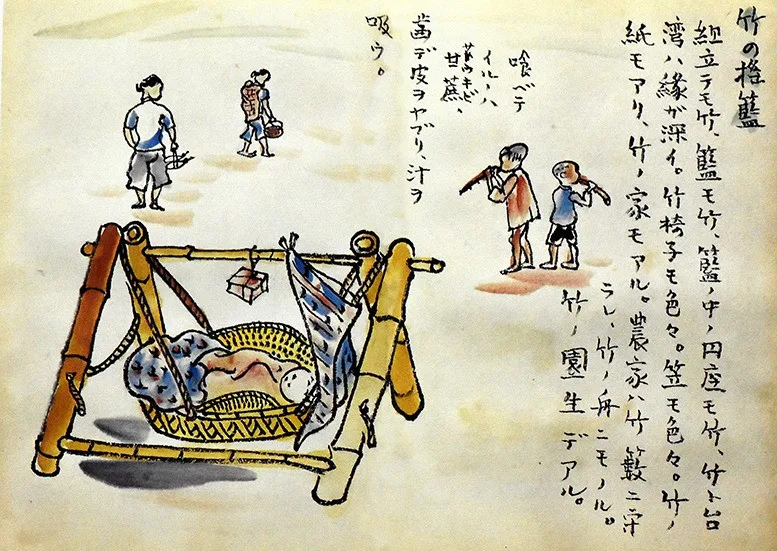 竹の搖籃
組立テモ竹、籃モ竹、籃ノ中ノ円座モ竹、竹ト台
湾ハ縁が深イ。竹椅子モ色々。笠モ色々。竹ノ
紙モアリ、竹ノ家モアル。農家ハ竹籔ニ守
ラレ、竹ノ舟ニモノル。
竹ノ園生デアル。
喰ベテ
イルノハ
甘蔗、
歯デ皮ヲヤブリ、汁ヲ
吸ウ。